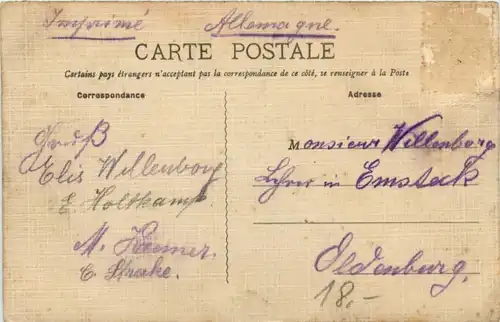 Imprimé Allemagne.
CARTE POSTALE
Certains pays étrangers n'acceptant pas la correspondance de ce côté, se renseigner à la Poste
Correspondance
Gruß
Elis Willenborg
E. Holtkamp.
M.
E.
Adresse
Monsieur Willenborg
Lehrer in Emsteck
Oldenburg.
18,-